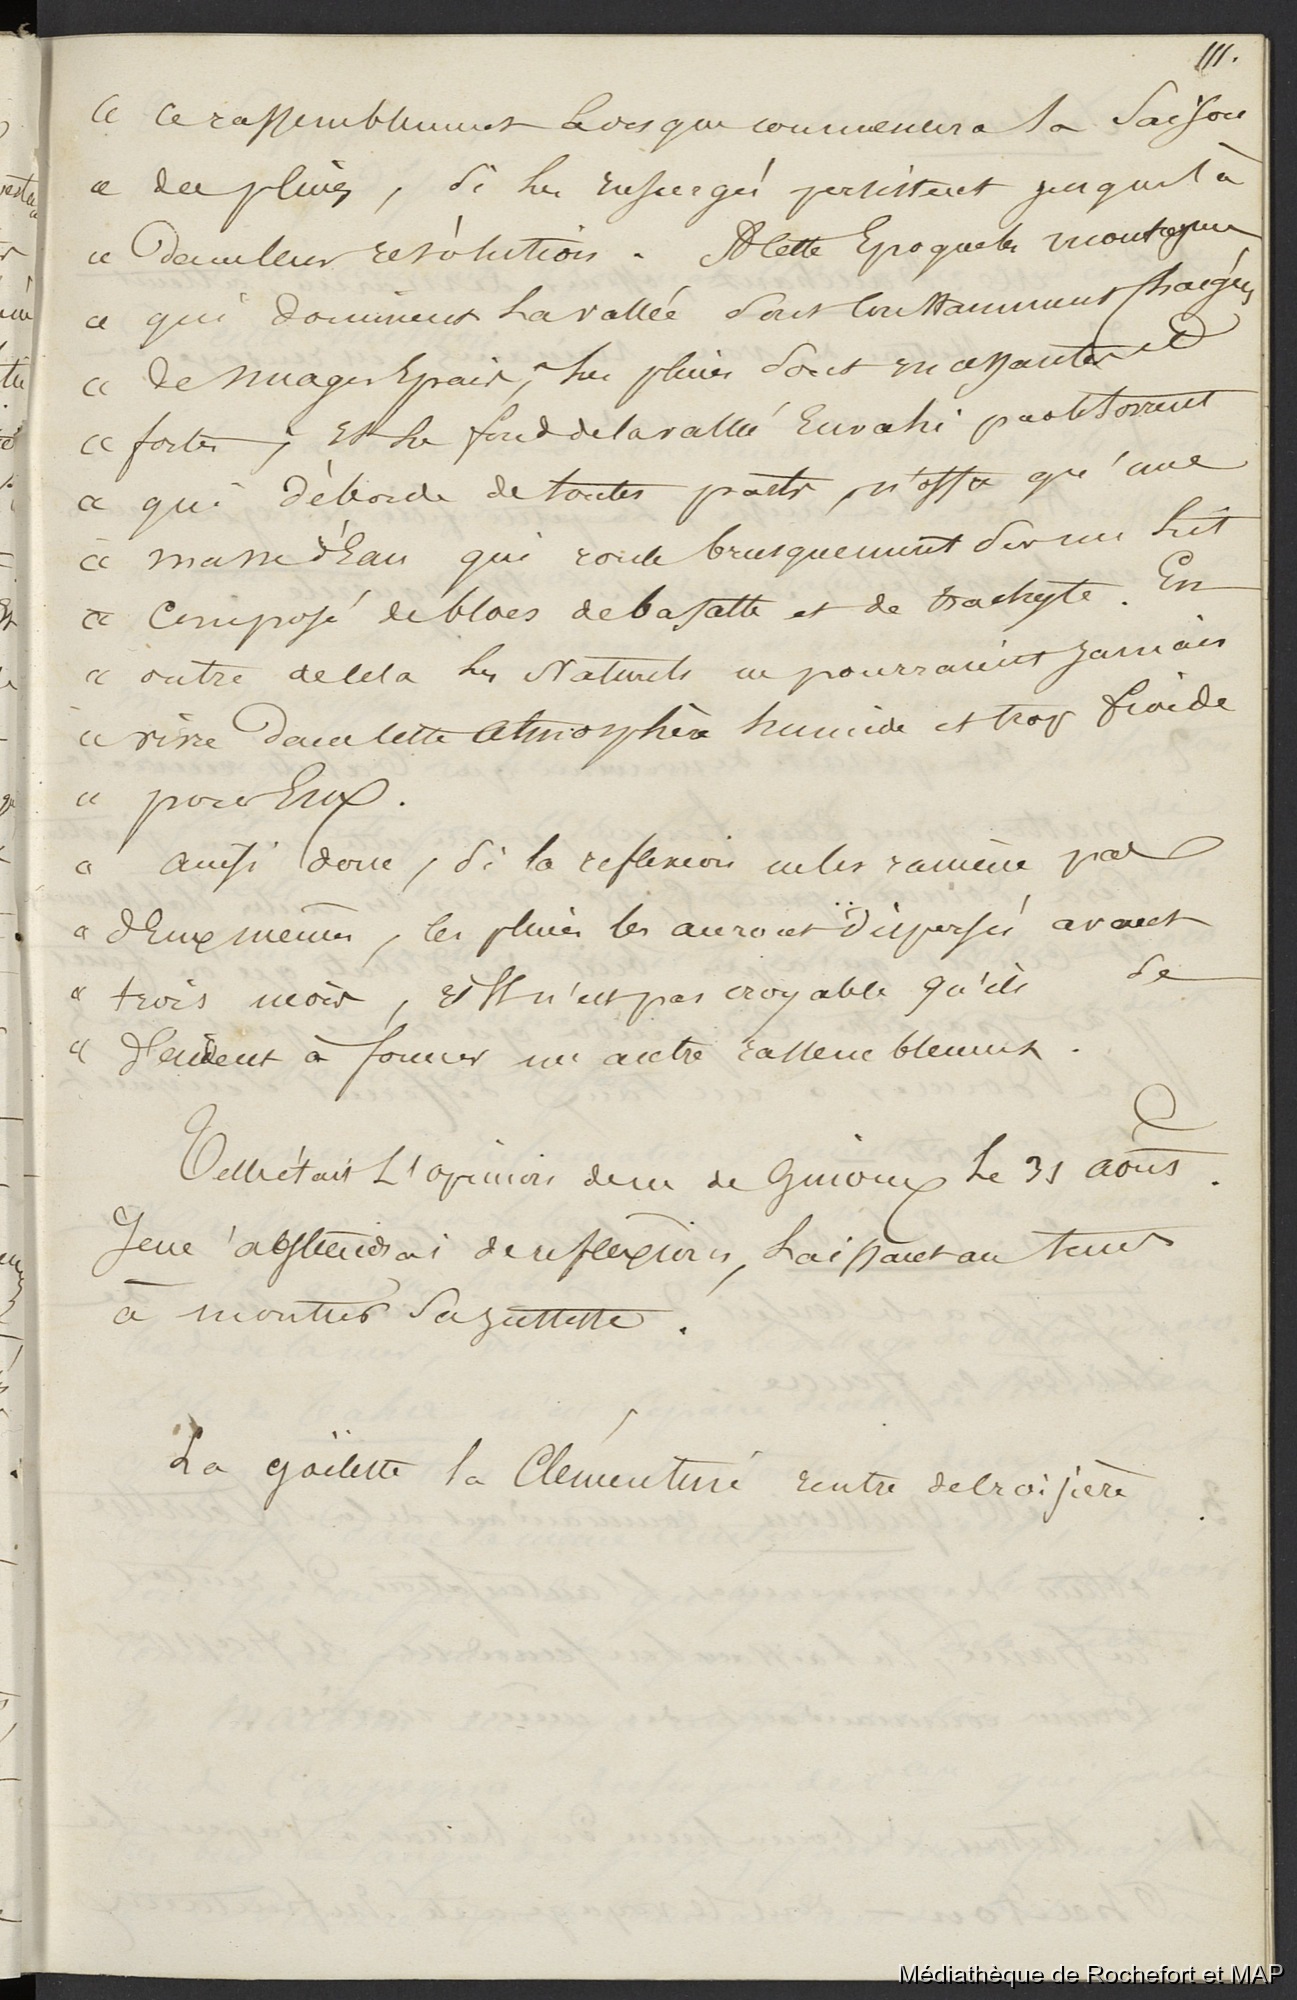 111.
« ce rassemblement lorsque commencera la saison
« des pluies, si les insurgés persistent jusque là
« dans leur résolution. A cette Epoque les montagnes
« qui dominent la vallée sont constamment chargées
« de nuages Epais, les pluies sont incessantes et
« fortes ; et le fond de la vallée Envahi par le torrent
« qui déborde de toutes parts, n'offre qu'une
« masse d'Eau qui roule brusquement sur un lit
« composé de blocs de basalte et de trachyte. En
« outre de cela les Naturels ne pourraient jamais
« vivre dans cette atmosphère humide et trop froide
« pour Eux.
« ainsi donc, si la reflexion ne les ramène pas
« d'Eux mêmes, les pluies les auront dispersés avant
« trois mois, et il n'est pas croyable qu'ils se
« decident à former un autre rassemblement.
Telle était L'opinion de m. de Ginoux le 31 août.
Je me 'abstiendrai de reflexions, Laissant au tems
à montrer sa justesse.
La goëlette la Clémentine rentre de croisière.
Médiathèque de Rochefort et MAP